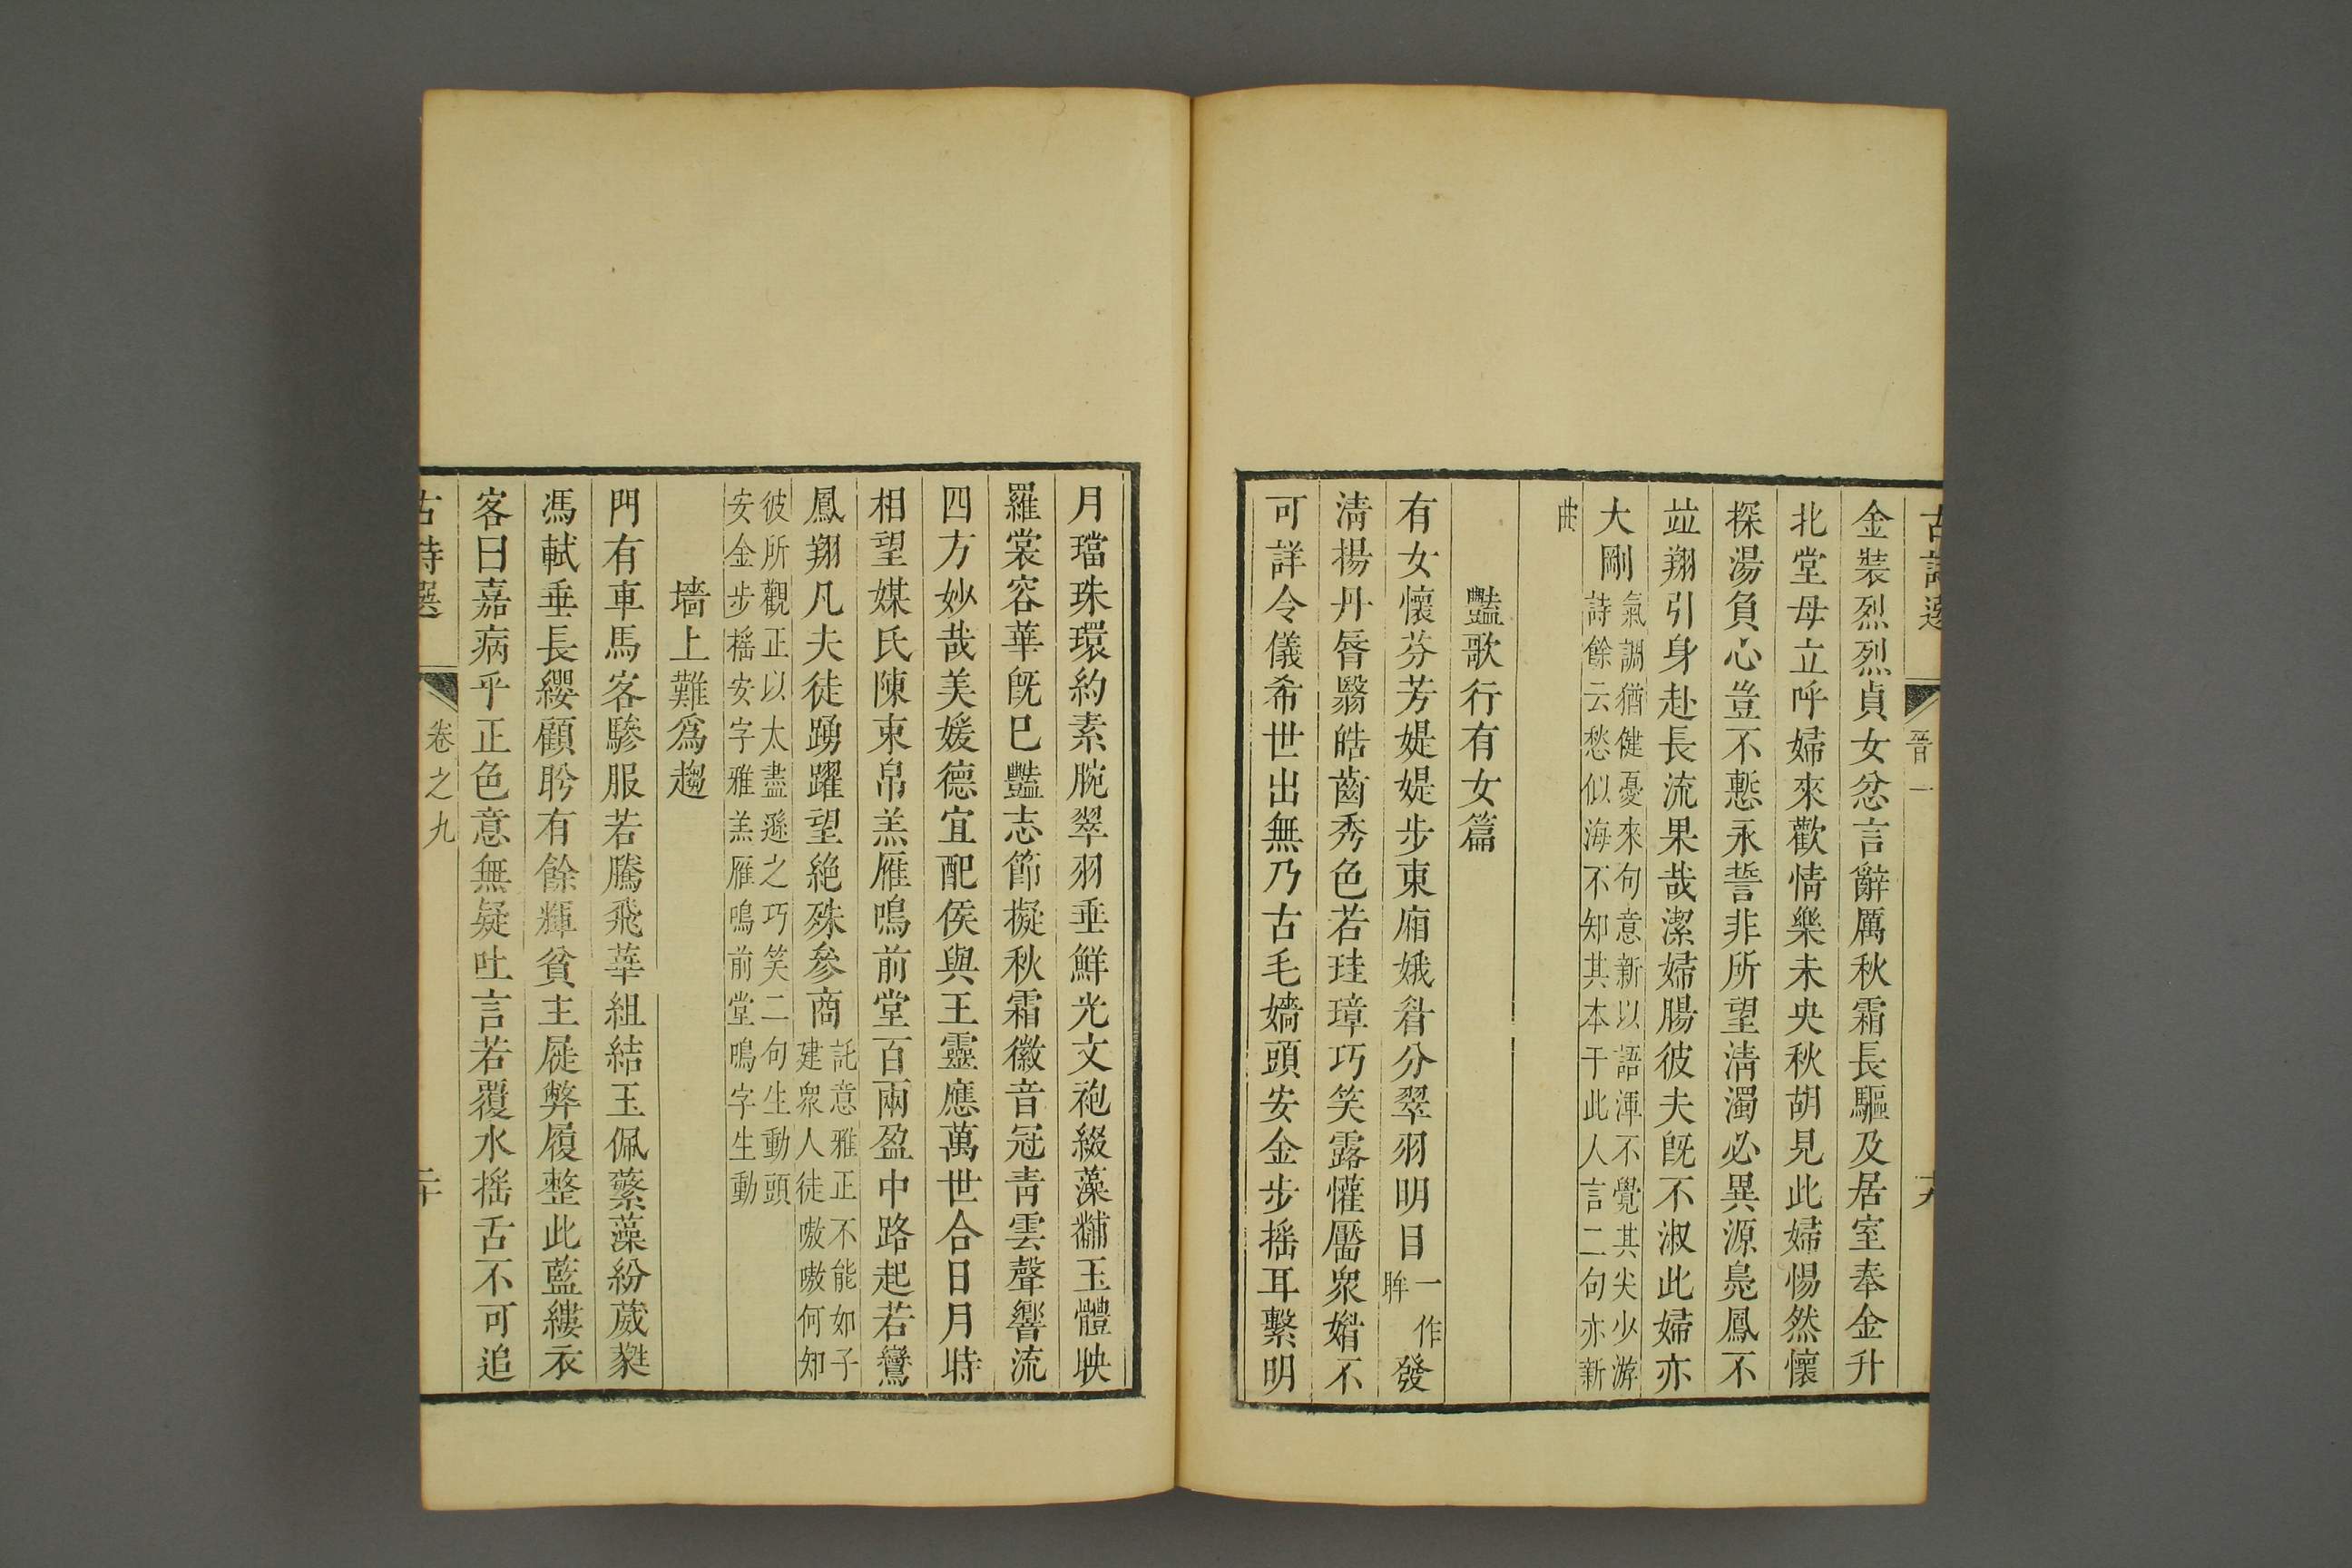 古詩選 晉一 十九
金裝烈烈貞女忿言辭厲秋霜長驅及居室奉金升
北堂母立呼婦來歡情樂未央秋胡見此婦惕然懷
探湯負心豈不慙永誓非所望淸濁必異源鳧鳳不
竝翔引身赴長流果哉潔婦腸彼夫旣不淑此婦亦
大剛
氣調猶健憂來句意新以語渾不覺其尖少游
詩餘云愁似海不知其本于此人言二句亦新
曲
豔歌行有女篇
有女懷芬芳媞媞步東廂娥眉分翠羽明目一作眸發
淸揚丹脣翳皓齒秀色若珪璋巧笑露懽靨衆媚不
可詳令儀希世出無乃古毛嬙頭安金步搖耳繫明
月璫珠環約素腕翠羽垂鮮光文袍綴藻黼玉體映
羅裳容華旣已豔志節擬秋霜徽音冠靑雲聲響流
四方妙哉美媛德宜配侯與王靈應萬世合日月時
相望媒氏陳束帛羔雁鳴前堂百兩盈中路起若鸞
鳳翔凡夫徒踴躍望絶殊參商
託意雅正不能如子
建衆人徒嗷嗷何知
彼所觀正以太盡遜之巧笑二句生動頭
安金步搖安字雅羔雁鳴前堂鳴字生動
墻上難爲趨
門有車馬客驂服若騰飛華組結玉佩蘩藻紛葳蕤
馮軾垂長纓顧盻有餘輝貧主屣弊履整此藍縷衣
客曰嘉病乎正色意無疑吐言若覆水搖舌不可追
古詩選 卷之九 二十